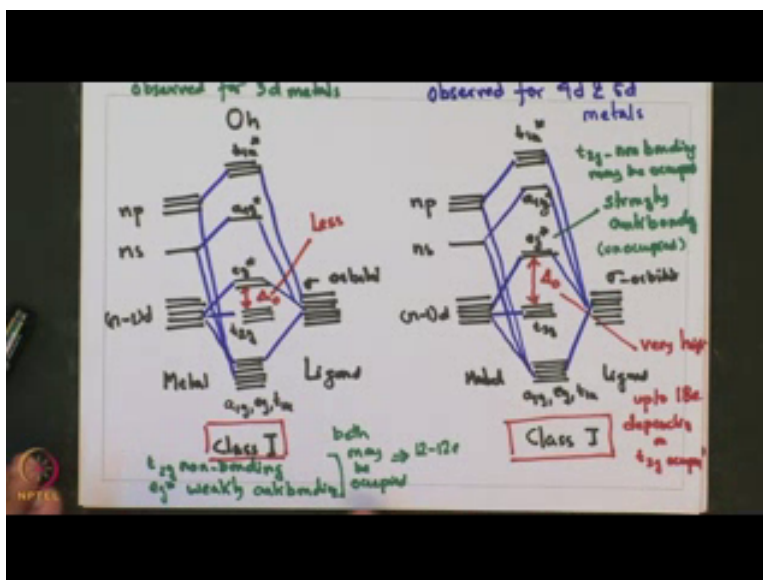 observed for 3d metals
Oh
t1u*
np
a1g*
ns
Less
eg*
σ orbital
Δo
(n-1)d
t2g
Metal
Ligand
a1g, eg, t1u
Class I
t2g non-bonding
eg* weakly antibonding
both
may
be
occupied
⇒ 12-
observed for 4d & 5d
metals
t1u*
t2g - non bonding
may be occupied
np
a1g*
strongly
antibonding
(unoccupied)
ns
eg*
σ-orbitals
Δo
(n-1)d
t2g
very high
Metal
Ligand
upto 18e
depending
on
t2g
a1g, eg, t1u
Class I
NPTEL